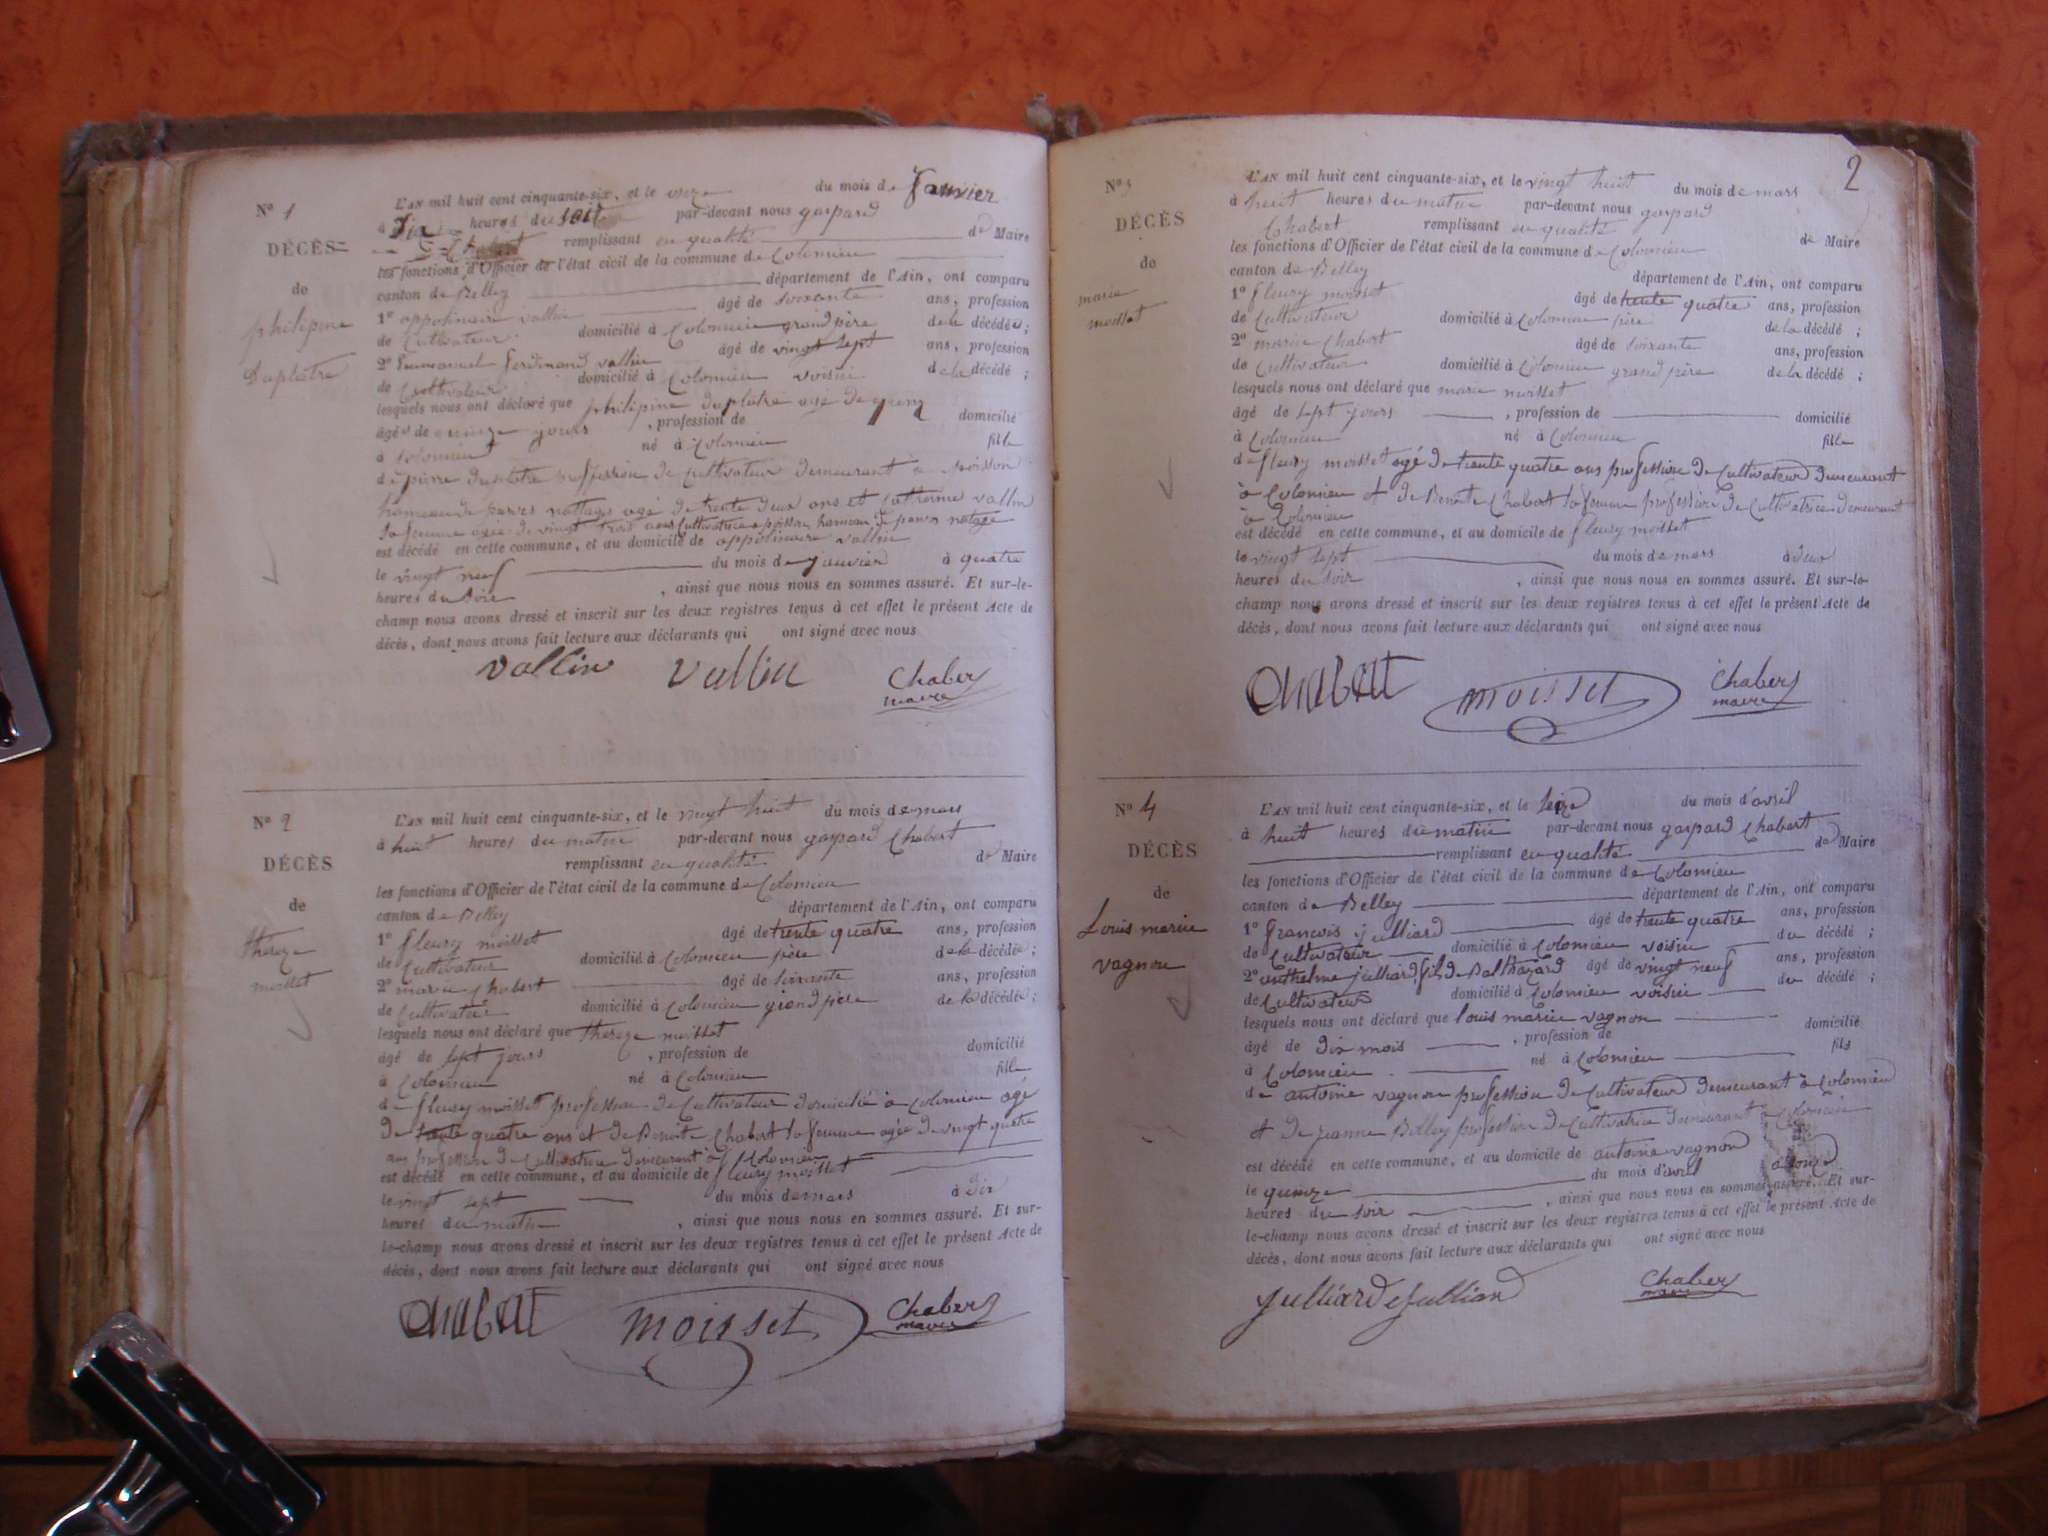 Nº 1
DÉCÈS
de
philipine
Duplatre
L'AN mil huit cent cinquante-six, et le onze du mois de Janvier
à Six heures du soir par-devant nous gaspard
Chabert remplissant en qualité de Maire
les fonctions d'Officier de l'état civil de la commune de Colomieu
canton de Belley département de l'Ain, ont comparu
1º appolinaire vallin âgé de soixante ans, profession
de Cultivateur domicilié à Colomieu grand père de la décédée ;
2º Emmanuel ferdinand vallin âgé de vingt sept ans, profession
de Cultivateur domicilié à Colomieu voisin de la décédé ;
lesquels nous ont déclaré que philipine duplatre age de
âgé de quinze jours , profession de domicilié
à Colomieu né à Colomieu fille
de pierre duplatre profession de Cultivateur demeurant a
hameau de parves nattages agé de trente deux ans et Catherine vallin
sa femme agée de vingt trois ans Cultivatrice hameau de parves natage
est décédé en cette commune, et au domicile de appolinaire vallin
le vingt neuf du mois de janvier à quatre
heures du soir , ainsi que nous nous en sommes assuré. Et sur-le-
champ nous avons dressé et inscrit sur les deux registres tenus à cet effet le présent Acte de
décès, dont nous avons fait lecture aux déclarants qui ont signé avec nous
vallin vallin Chabert
maire
Nº 2
DÉCÈS
de
thereze
moisset
L'AN mil huit cent cinquante-six, et le vingt huit du mois de mars
à huit heures du matin par-devant nous gaspard Chabert
remplissant en qualité de Maire
les fonctions d'Officier de l'état civil de la commune de Colomieu
canton de Belley département de l'Ain, ont comparu
1º fleury moisset âgé de trente quatre ans, profession
de Cultivateur domicilié à Colomieu père de la décédée ;
2º marin Chabert âgé de soixante ans, profession
de Cultivateur domicilié à Colomieu grand père de la décédée ;
lesquels nous ont déclaré que thereze moisset
âgé de sept jours , profession de domicilié
à Colomieu né à Colomieu fille
de fleury moisset profession de Cultivateur domicilié à Colomieu agé
de trente quatre ans et de Benoite Chabert sa femme agée de vingt quatre
ans profession de Cultivatrice demeurant à Colomieu
est décédé en cette commune, et au domicile de fleury moisset
le vingt sept du mois de mars à dix
heures du matin , ainsi que nous nous en sommes assuré. Et sur-
le-champ nous avons dressé et inscrit sur les deux registres tenus à cet effet le présent Acte de
décès, dont nous avons fait lecture aux déclarants qui ont signé avec nous
Chabert moisset Chabert
maire
2
Nº 3
DÉCÈS
de
marie
moisset
L'AN mil huit cent cinquante-six, et le vingt huit du mois de mars
à huit heures du matin par-devant nous gaspard
Chabert remplissant en qualité de Maire
les fonctions d'Officier de l'état civil de la commune de Colomieu
canton de Belley département de l'Ain, ont comparu
1º fleury moisset âgé de trente quatre ans, profession
de Cultivateur domicilié à Colomieu père de la décédé ;
2º marin Chabert âgé de soixante ans, profession
de Cultivateur domicilié à Colomieu grand père de la décédé ;
lesquels nous ont déclaré que marie moisset
âgé de sept jours , profession de domicilié
à Colomieu né à Colomieu fille
de fleury moisset agé de trente quatre ans profession de Cultivateur demeurant
à Colomieu et de Benoite Chabert sa femme profession de Cultivatrice demeurant
à Colomieu
est décédé en cette commune, et au domicile de fleury moisset
le vingt sept du mois de mars à deux
heures du soir , ainsi que nous nous en sommes assuré. Et sur-le-
champ nous avons dressé et inscrit sur les deux registres tenus à cet effet le présent Acte de
décès, dont nous avons fait lecture aux déclarants qui ont signé avec nous
Chabert moisset Chabert
maire
Nº 4
DÉCÈS
de
Louis marin
vagnon
L'AN mil huit cent cinquante-six, et le seize du mois d'avril
à huit heures du matin par-devant nous gaspard Chabert
remplissant en qualité de Maire
les fonctions d'Officier de l'état civil de la commune de Colomieu
canton de Belley département de l'Ain, ont comparu
1º francois julliard âgé de trente quatre ans, profession
de Cultivateur domicilié à Colomieu voisin du décédé ;
2º anthelme julliard fils de Balthazard âgé de vingt neuf ans, profession
de Cultivateur domicilié à Colomieu voisin du décédé ;
lesquels nous ont déclaré que louis marin vagnon
âgé de dix mois , profession de domicilié
à Colomieu né à Colomieu fils
de antoine vagnon profession de Cultivateur demeurant à Colomieu
et de jeanne Belley profession de Cultivatrice demeurant à Colomieu
est décédé en cette commune, et au domicile de antoine vagnon
le quinze du mois d'avril à onze
heures du soir , ainsi que nous nous en sommes assuré. Et sur-
le-champ nous avons dressé et inscrit sur les deux registres tenus à cet effet le présent Acte de
décès, dont nous avons fait lecture aux déclarants qui ont signé avec nous
julliard julliard Chabert
maire